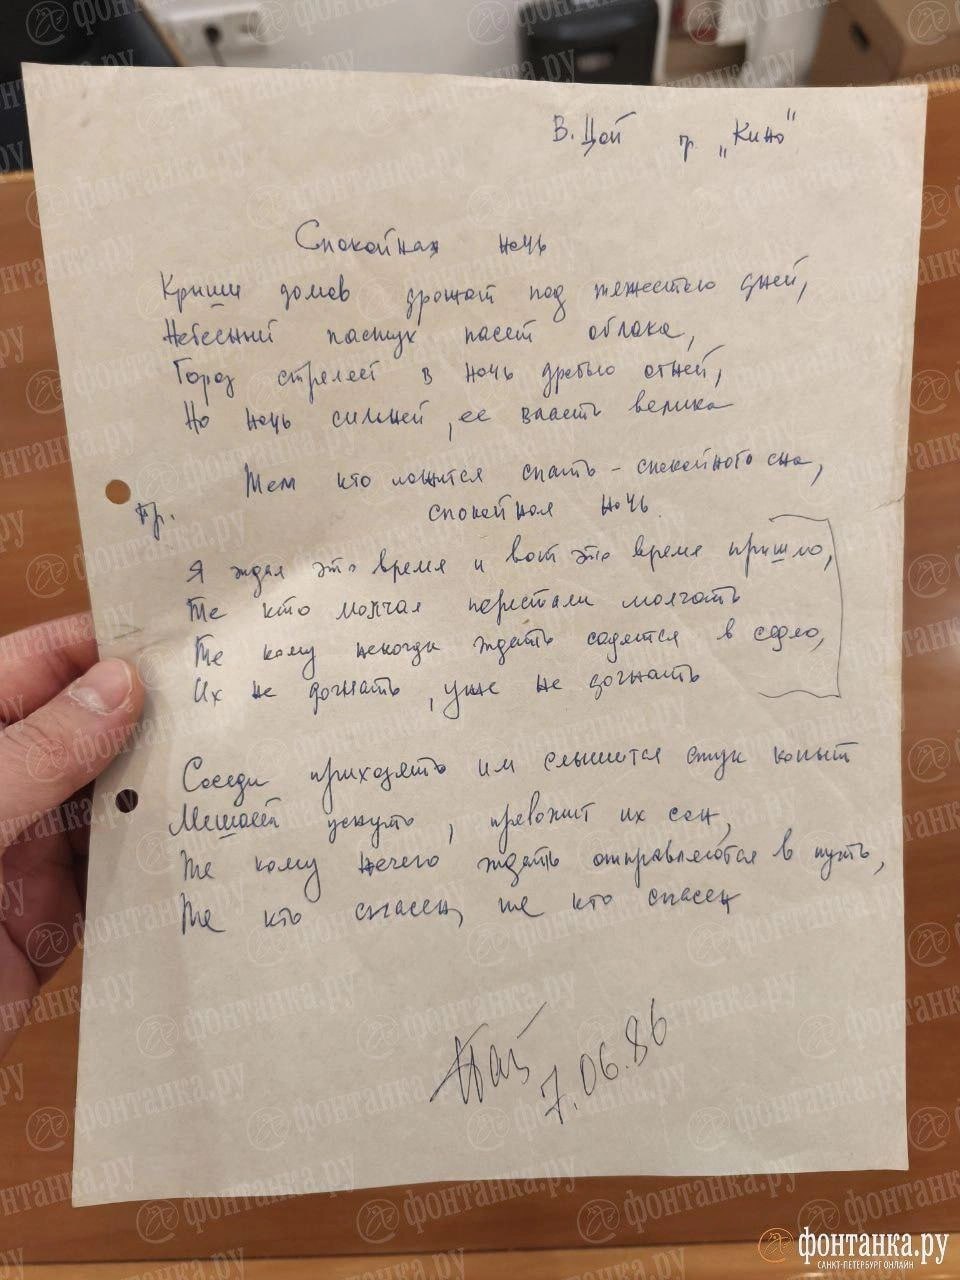 В. Цой гр. „Кино"
Спокойная ночь
Крыши домов дрожат под тяжестью дней,
Небесный пастух пасет облака,
Город стреляет в ночь дробью огней,
Но ночь сильней, ее власть велика
Тем кто ложится спать - спокойного сна,
пр. спокойная ночь.
Я ждал это время и вот это время пришло,
Те кто молчал перестали молчать
Те кому некогда ждать садятся в седло,
Их не догнать, уже не догнать
Соседи приходят им слышится стук копыт
Мешает уснуть, тревожит их сон,
Те кому нечего ждать отправляются в путь,
Те кто спасен, те кто спасен
7.06.86
фонтанка.ру
САНКТ-ПЕТЕРБУРГ ОНЛАЙН